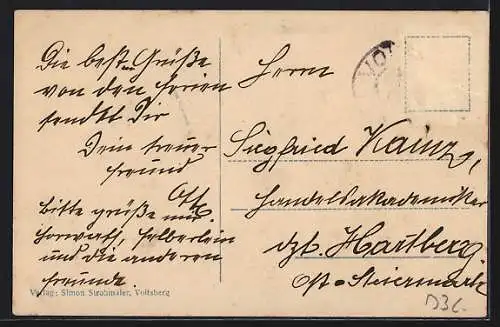 Die besten Grüße
von den Ferien
sendet Dir
Dein treuer
Freund
Otto.
Bitte grüße mir
Horwath, Silberlein
und die anderen
Freunde.
Verlag: Simon Strahmaier, Voitsberg
VOI
Herrn
Siegfried Kainz,
Handelsakademiker
dzt. Hartberg
Ost-Steiermark
D3C.